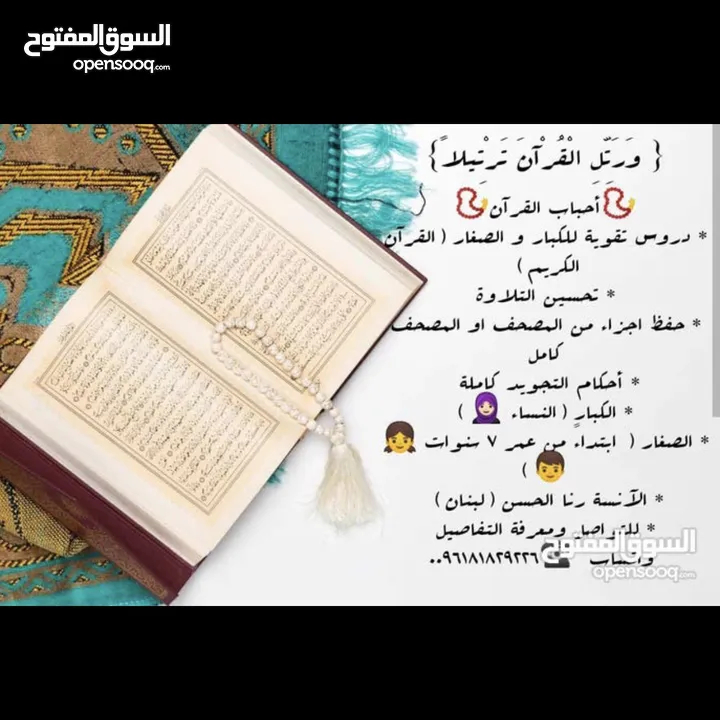 السوق المفتوح
opensooq.com
{ وَرَتِّلِ الْقُرْآنَ تَرْتِيلاً }
📿 أحباب القرآن 📿
* دروس تقوية للكبار و الصغار ( القرآن
الكريم )
* تحسين التلاوة
* حفظ اجزاء من المصحف او المصحف
كامل
* أحكام التجويد كاملة
* الكبار ( النساء 🧕 )
* الصغار ( ابتداءً من عمر ٧ سنوات 👧
👦 )
* الآنسة رنا الحسن ( لبنان )
* للتواصل ومعرفة التفاصيل
واتساب ☎ ٠٠٩٦١٨١٨٢٩٢٢٦
السوق المفتوح
opensooq.com